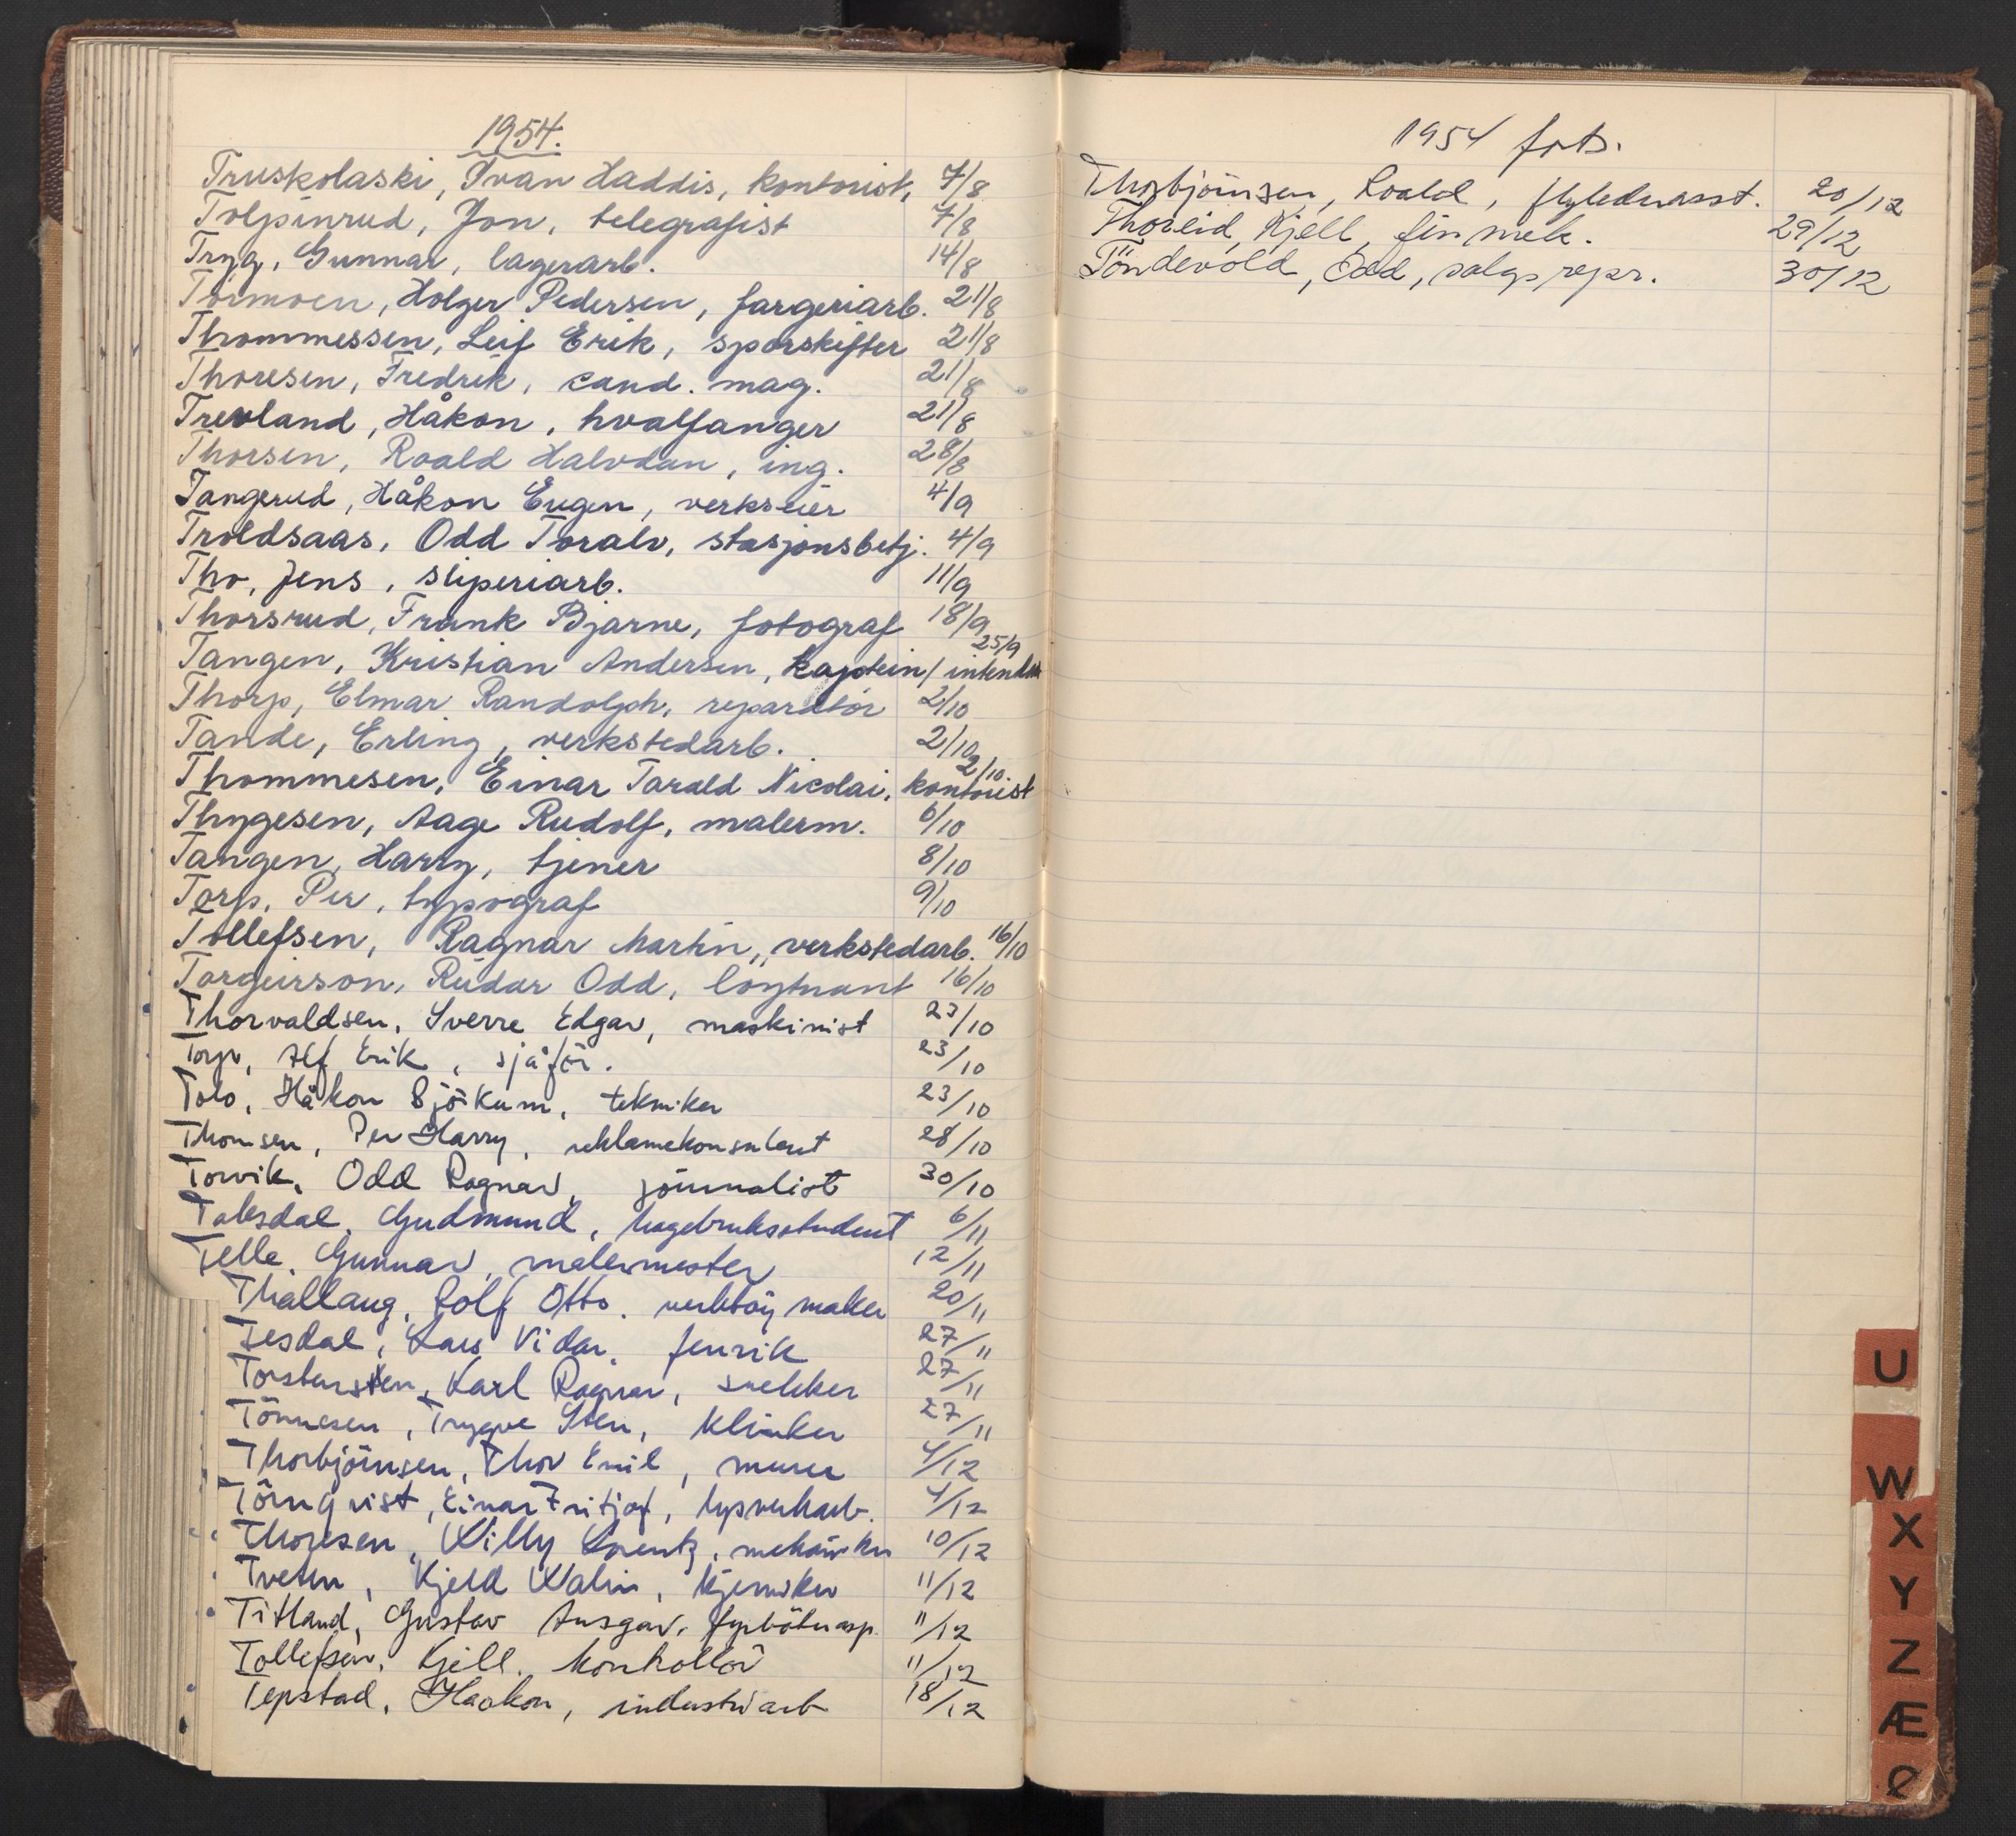 1954.
Truskolaski, Ivan Haddis, kontorist, 7/8
Tolpinrud, Jon, telegrafist 7/8
Tryg, Gunnar, lagerarb. 14/8
Tormoen, Holger Pedersen, fargeriarb. 21/8
Thommessen, Leif Erik, sporskifter 21/8
Thoresen, Fredrik, cand. mag. 21/8
Trevland, Håkon, hvalfanger 21/8
Thorsen, Roald Halvdan, ing. 28/8
Tangerud, Håkon Eugen, verkseier 4/9
Troldsaas, Odd Toralv, stasjonsbetj. 4/9
Tho, Jens, sliperiarb. 11/9
Thorsrud, Frank Bjarne, fotograf 18/9
Tangen, Kristian Andersen, kaptein/ 25/9
Thorp, Elmar Randolph, reparatör 2/10
Tande, Erling, verkstedarb. 2/10
Thommesen, Einar Tarald Nicolai, kontorist 2/10.
Thygesen, Aage Rudolf, malerm. 6/10
Tangen, Harry, tjener 8/10
Torp, Per, typograf 9/10
Tollefsen, Ragnar Martin, verkstedarb. 16/10
Torgeirson, Reidar Odd, löytnant 16/10
Thorvaldsen, Sverre Edgar, maskinist 23/10
Torp, Alf Erik, sjåför. 23/10
Tolo, Håkon Björkum, tekniker 23/10
Thomsen, Per Harry, reklamekonsulent 28/10
Torvik, Odd Ragnar, journalist 30/10
Talesdal, Gudmund, hagebruksstudent 6/11
Telle, Gunnar, malermester 12/11
Thallaug, Rolf Otto, verktöymaker 20/11
Tesdal, Lars Vidar, fenrik 27/11
Torstensen, Karl Ragnar, snekker 27/11
Tönnesen, Trygve Sten, klinker 27/11
Thorbjörnsen, Thor Emil, murer 4/12
Törnqvist, Einar Fritjof, lysverkarb. 4/12
Thoresen, Willy Lorentz, mekaniker 10/12
Tveten, Kjeld Walin, kjemiker 11/12
Titland, Gustav Ansgar, fyrböterasp. 11/12
Tollefsen, Kjell, kontrollör 11/12
Tepstad, Haakon, industriarb 18/12
1954 forts.
Thorbjörnsen, Roald, flylednasst. 20/12
Thoreid, Kjell, finmek. 29/12
Töndevold, Odd, salgsrepr. 30/12
U
W
X
Y
Z
Æ
Ø